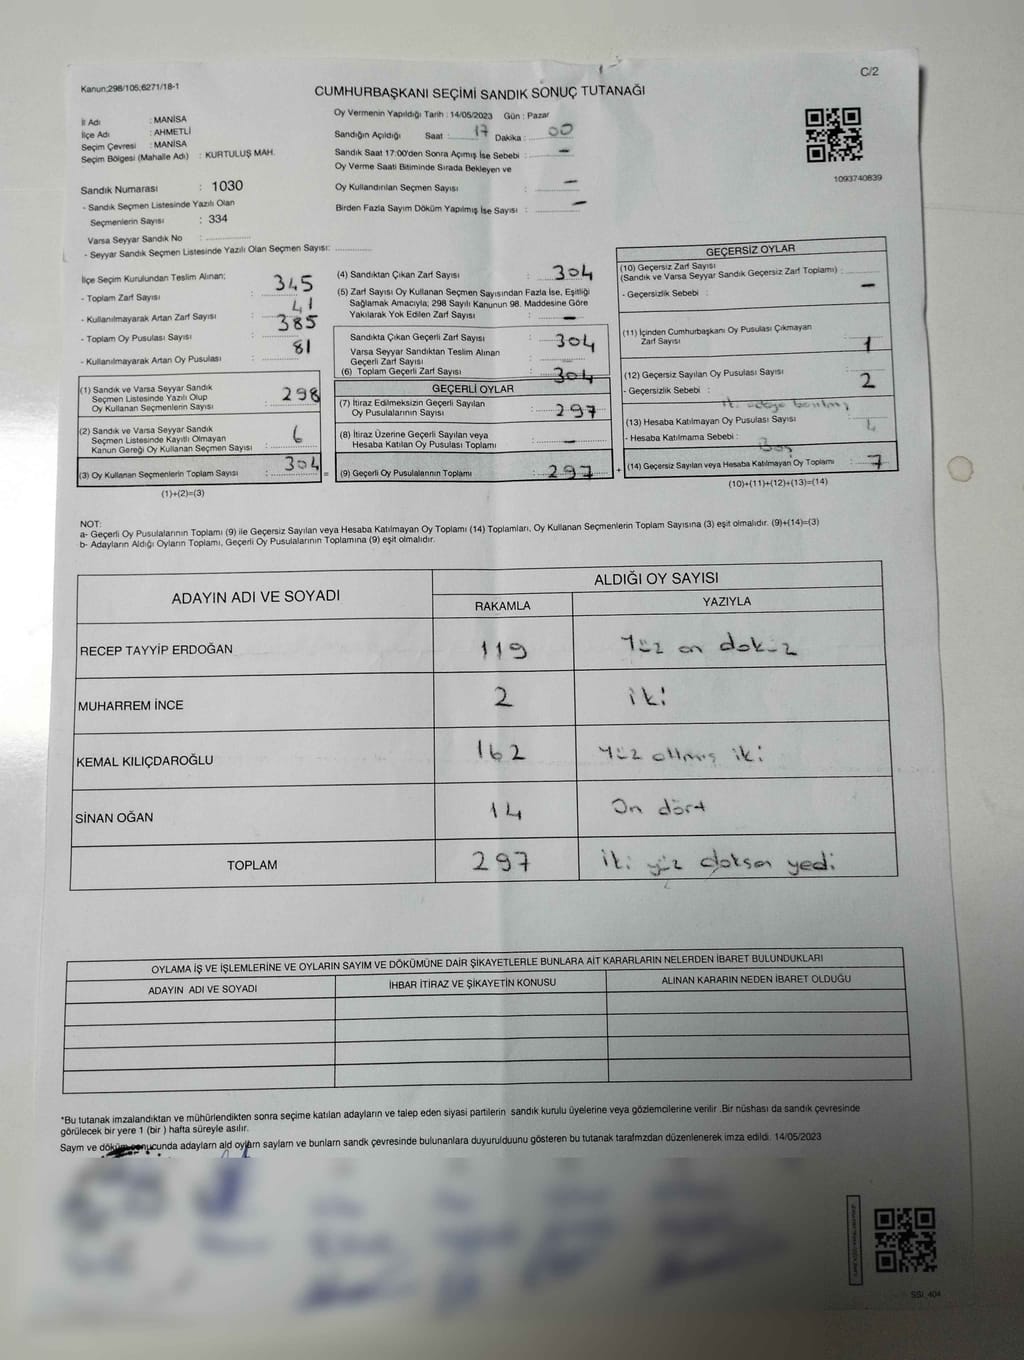 Kanun;298/105;6271/18-1
C/2
CUMHURBAŞKANI SEÇİMİ SANDIK SONUÇ TUTANAĞI
İl Adı : MANİSA
İlçe Adı : AHMETLİ
Seçim Çevresi : MANİSA
Seçim Bölgesi (Mahalle Adı) : KURTULUŞ MAH.
Oy Vermenin Yapıldığı Tarih : 14/05/2023 Gün : Pazar
Sandığın Açıldığı Saat : 17 Dakika : 00
Sandık Saat 17:00'den Sonra Açımış İse Sebebi : –
Oy Verme Saati Bitiminde Sırada Bekleyen ve
Oy Kullandırılan Seçmen Sayısı : –
Birden Fazla Sayım Döküm Yapılmış İse Sayısı : –
1093740839
Sandık Numarası : 1030
- Sandık Seçmen Listesinde Yazılı Olan
Seçmenlerin Sayısı : 334
Varsa Seyyar Sandık No :
- Seyyar Sandık Seçmen Listesinde Yazılı Olan Seçmen Sayısı:
İlçe Seçim Kurulundan Teslim Alınan;
- Toplam Zarf Sayısı : 345
- Kullanılmayarak Artan Zarf Sayısı : 41
- Toplam Oy Pusulası Sayısı : 385
- Kullanılmayarak Artan Oy Pusulası : 81
(1) Sandık ve Varsa Seyyar Sandık
Seçmen Listesinde Yazılı Olup
Oy Kullanan Seçmenlerin Sayısı : 298
(2) Sandık ve Varsa Seyyar Sandık
Seçmen Listesinde Kayıtlı Olmayan
Kanun Gereği Oy Kullanan Seçmen Sayısı : 6
(3) Oy Kullanan Seçmenlerin Toplam Sayısı : 304 =
(1)+(2)=(3)
(4) Sandıktan Çıkan Zarf Sayısı : 304
(5) Zarf Sayısı Oy Kullanan Seçmen Sayısından Fazla İse, Eşitliği
Sağlamak Amacıyla; 298 Sayılı Kanunun 98. Maddesine Göre
Yakılarak Yok Edilen Zarf Sayısı : –
Sandıkta Çıkan Geçerli Zarf Sayısı : 304
Varsa Seyyar Sandıktan Teslim Alınan
Geçerli Zarf Sayısı : –
(6) Toplam Geçerli Zarf Sayısı : 304
GEÇERLİ OYLAR
(7) İtiraz Edilmeksizin Geçerli Sayılan
Oy Pusulalarının Sayısı : 297
(8) İtiraz Üzerine Geçerli Sayılan veya
Hesaba Katılan Oy Pusulası Toplamı : –
(9) Geçerli Oy Pusulalarının Toplamı : 297 +
GEÇERSİZ OYLAR
(10) Geçersiz Zarf Sayısı
(Sandık ve Varsa Seyyar Sandık Geçersiz Zarf Toplamı) : –
- Geçersizlik Sebebi :
(11) İçinden Cumhurbaşkanı Oy Pusulası Çıkmayan
Zarf Sayısı : 1
(12) Geçersiz Sayılan Oy Pusulası Sayısı : 2
- Geçersizlik Sebebi :
(13) Hesaba Katılmayan Oy Pusulası Sayısı : 4
- Hesaba Katılmama Sebebi : Boş
(14) Geçersiz Sayılan veya Hesaba Katılmayan Oy Toplamı : 7
(10)+(11)+(12)+(13)=(14)
NOT:
a- Geçerli Oy Pusulalarının Toplamı (9) ile Geçersiz Sayılan veya Hesaba Katılmayan Oy Toplamı (14) Toplamları, Oy Kullanan Seçmenlerin Toplam Sayısına (3) eşit olmalıdır. (9)+(14)=(3)
b- Adayların Aldığı Oyların Toplamı, Geçerli Oy Pusulalarının Toplamına (9) eşit olmalıdır.
ADAYIN ADI VE SOYADI
ALDIĞI OY SAYISI
RAKAMLA YAZIYLA
RECEP TAYYİP ERDOĞAN 119 Yüz on dokuz
MUHARREM İNCE 2 iki
KEMAL KILIÇDAROĞLU 162 Yüz altmış iki
SİNAN OĞAN 14 On dört
TOPLAM 297 iki yüz doksan yedi
OYLAMA İŞ VE İŞLEMLERİNE VE OYLARIN SAYIM VE DÖKÜMÜNE DAİR ŞİKAYETLERLE BUNLARA AİT KARARLARIN NELERDEN İBARET BULUNDUKLARI
ADAYIN ADI VE SOYADI
İHBAR İTİRAZ VE ŞİKAYETİN KONUSU
ALINAN KARARIN NEDEN İBARET OLDUĞU
*Bu tutanak imzalandıktan ve mühürlendikten sonra seçime katılan adayların ve talep eden siyasi partilerin sandık kurulu üyelerine veya gözlemcilerine verilir .Bir nüshası da sandık çevresinde
görülecek bir yere 1 (bir ) hafta süreyle asılır.
Saym ve döküm sonucunda adaylarn ald oylarn saylarn ve bunlarn sandk çevresinde bulunanlara duyurulduunu gösteren bu tutanak tarafmzdan düzenlenerek imza edildi. 14/05/2023
SSI_404